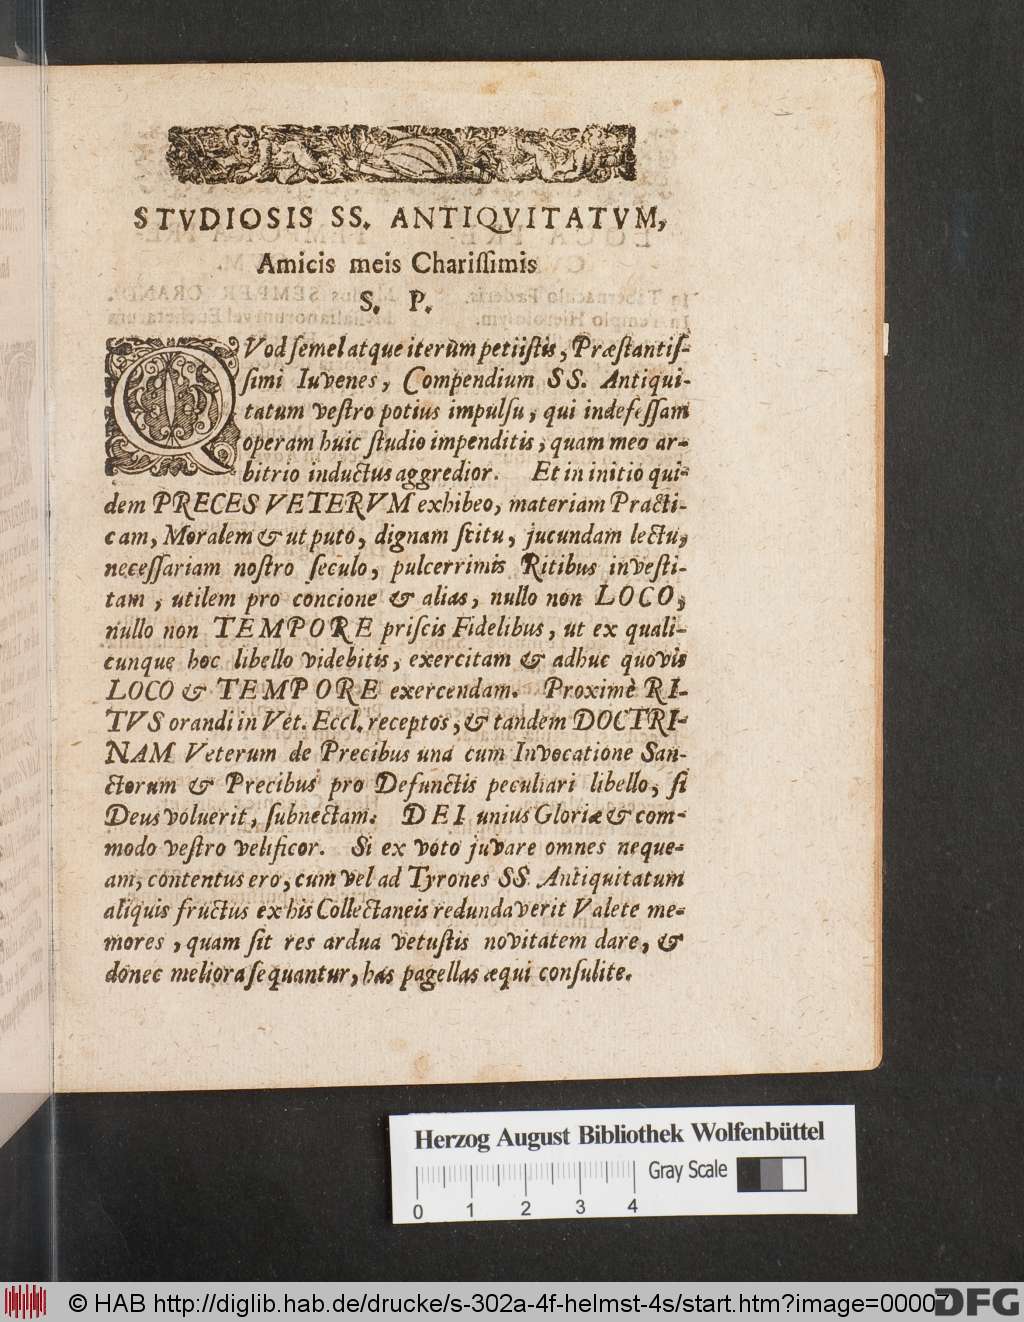 STVDIOSIS SS. ANTIQVITATVM,
Amicis meis Chariſſimis
S. P.
QVod ſemel atque iterùm petiiſtis, Præſtantiſ-
ſimi Iuvenes, Compendium SS. Antiqui-
tatum veſtro potius impulſu, qui indefeſſam
operam huic ſtudio impenditis, quam meo ar-
bitrio inductus aggredior. Et in initio qui-
dem PRECES VETERVM exhibeo, materiam Practi-
cam, Moralem & ut puto, dignam ſcitu, jucundam lectu,
neceſſariam noſtro ſeculo, pulcerrimis Ritibus inveſti-
tam, utilem pro concione & alias, nullo non LOCO,
nullo non TEMPORE priſcis Fidelibus, ut ex quali-
cunque hoc libello videbitis, exercitam & adhuc quovis
LOCO & TEMPORE exercendam. Proximè RI-
TVS orandi in Vet. Eccl. receptos, & tandem DOCTRI-
NAM Veterum de Precibus una cum Invocatione San-
ctorum & Precibus pro Defunctis peculiari libello, ſi
Deus voluerit, ſubnectam. DEI unius Gloriæ & com-
modo veſtro velificor. Si ex voto juvare omnes neque-
am, contentus ero, cum vel ad Tyrones SS. Antiquitatum
aliquis fructus ex his Collectaneis redundaverit Valete me-
mores, quam ſit res ardua vetuſtis novitatem dare, &
donec meliora ſequantur, has pagellas æqui conſulite.
Herzog August Bibliothek Wolfenbüttel
Gray Scale
0 1 2 3 4
© HAB http://diglib.hab.de/drucke/s-302a-4f-helmst-4s/start.htm?image=00007
DFG